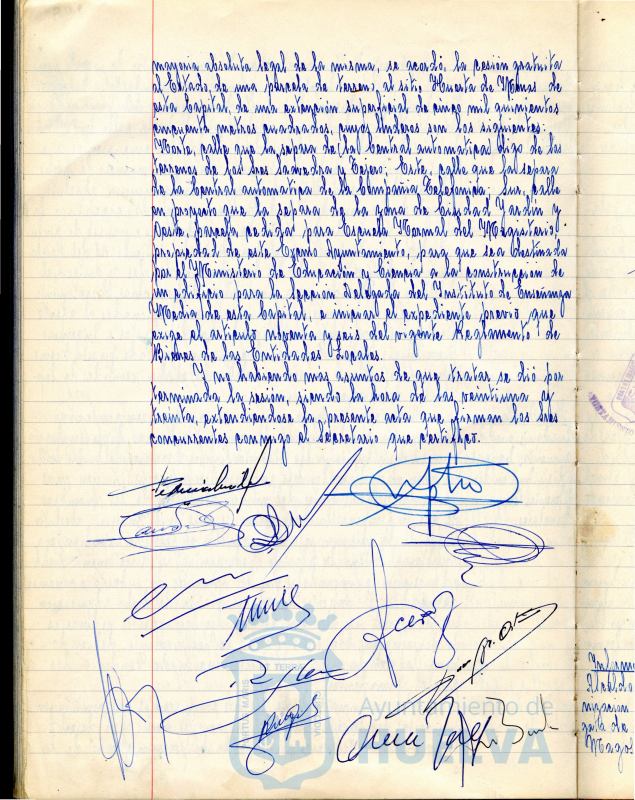 mayoria absoluta legal de la misma, se acordó, la cesión gratuita
al Estado, de una parcela de terreno, al sitio Huerta de Menas de
esta Capital, de una extensión superficial de cinco mil quinientos
cincuenta metros cuadrados, cuyos linderos son los siguientes:
Norte, calle que la separa de (la Central automatica) digo de los
terrenos de los Sres Saavedra y Tejero; Este, calle que la separa
de la Central automatica de la Compañia Telefonica; Sur, calle
en proyecto que la separa de la zona de Ciudad Jardin y
Oeste, parcela cedida para Escuela Normal del Magisterio
propiedad de este Excmo Ayuntamiento, para que sea destinada
por el Ministerio de Educación y Ciencia a la construccion de
un edificio para la Sección Delegada del Instituto de Enseñanza
Media de esta Capital, e iniciar el expediente previo que
exige el articulo noventa y seis del vigente Reglamento de
Bienes de las Entidades Locales.
Y no habiendo más asuntos de que tratar se dió por
terminada la sesión, siendo la hora de las veintiuna y
treinta, extendiendose la presente acta que firman los Sres
concurrentes conmigo el Secretario que certifico.
Ayuntamiento de
HUELVA